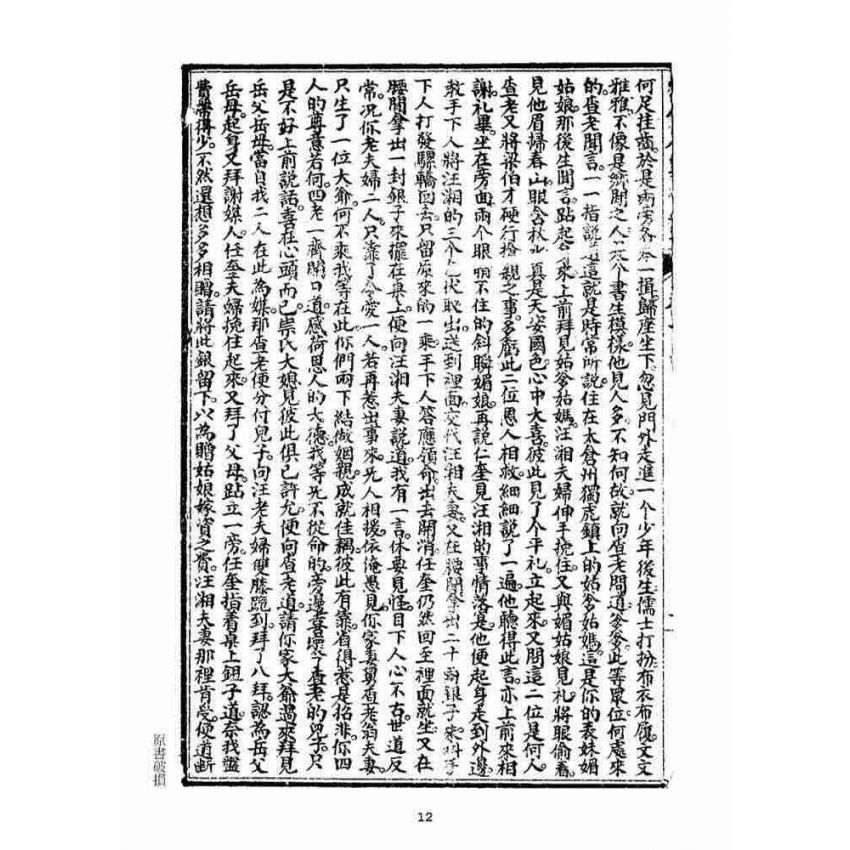 何足挂齒於是兩旁各各一揖歸座坐下忽見門外走進一个少年後生儒士打扮布衣布履文文
雅雅不像是綁閒之人个書生模樣他見人多不知何故就向查老問道爹爹此等眾位何處來
的查老聞言一一指說道這就是時常所說住在太倉州獨虎鎮上的姑爹姑媽這是你的表妹媚
姑娘那後生聞言跕起來上前拜見姑爹姑媽汪湘夫婦伸手挽住又與媚姑娘見礼將眼偷看
見他眉掃春山眼含秋水真是天姿國色心中大喜彼此見了个平礼立起來又問這二位是何人
查老又將梁伯才硬行搶親之事多虧此二位恩人相救細細說了一遍他聽得此言亦上前來相
謝礼畢坐在旁面兩个眼不住的斜聯媚娘再說仁奎見汪湘的事情落是他便起身走到外邊
教手下人將汪湘的三个包伏取出送到裡面交代汪湘夫妻又在腰間拿出二十兩銀子來手
下人打發騾轎回去只留原來的一乘手下人答應領命出去開消任奎仍然回至裡面就坐又在
腰間拿出一封銀子來擺在桌上便向汪湘夫妻說道我有一言休要見怪目下人心不古世道反
常况你老夫婦二人只靠了令愛一人若再惹出事來旡人相援依俺愚見你家妻舅查老翁夫妻
只生了一位大爺何不乘我等在此你們兩下結做姻親成就佳耦彼此有靠省得惹是招非你四
人的尊意若何四老一齊開口道感荷恩人的大德我等旡不從命的旁邊喜壞了查老的兒子只
是不好上前說話喜在心頭而已崇氏大娘見彼此俱已許允便向省老道請你家大爺過來拜見
岳父岳母當自我二人在此為媒那查老便分付兒子向汪老夫婦雙膝跪到拜了八拜認為岳父
岳母起身又拜謝媒人任奎夫婦挽住起來又拜了父母跕立一旁任奎指着桌上鈕子道奈我盤
費帶得少不然還想多多相贈請將此銀留下以為贈姑娘嫁資之費汪湘夫妻那裡肯受便道斷
原書破損
12